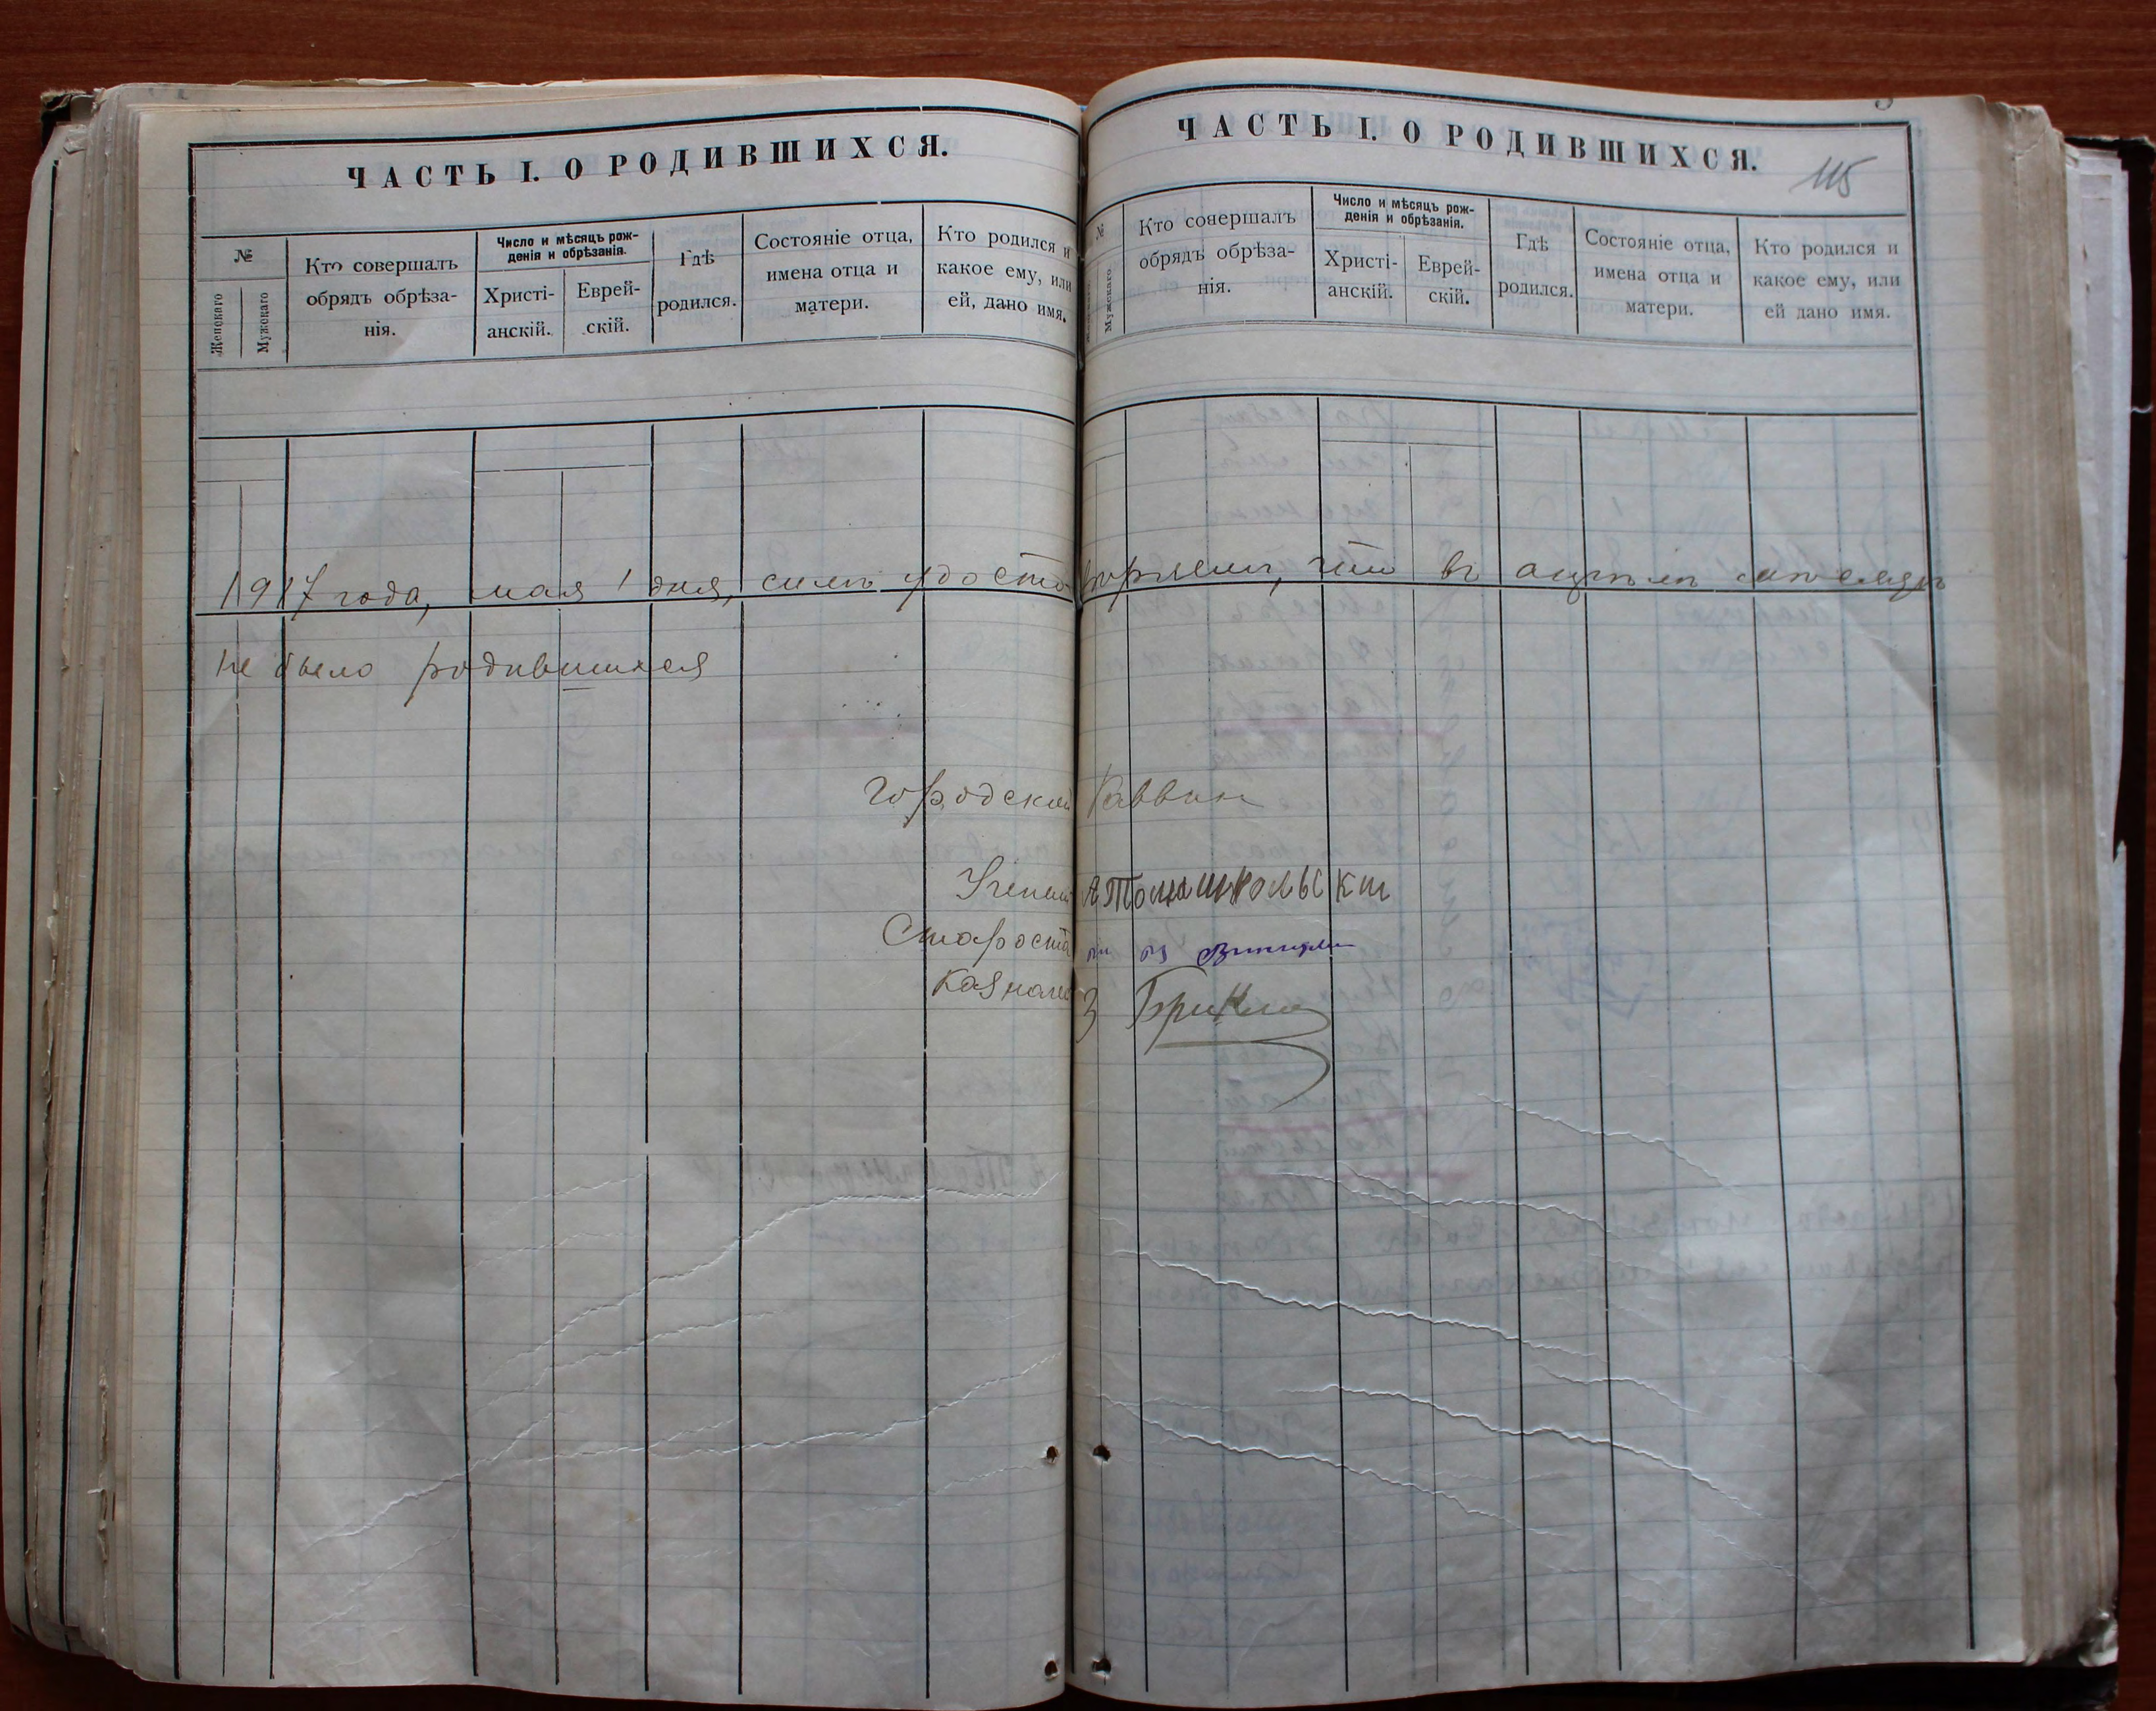 ЧАСТЬ I. О РОДИВШИХСЯ.
№
Женскаго
Мужскаго
Кто совершалъ
обрядъ обрѣза-
нія.
Число и мѣсяцъ рож-
денія и обрѣзанія.
Христі-
анскій.
Еврей-
скій.
Гдѣ
родился.
Состояніе отца,
имена отца и
матери.
Кто родился и
какое ему, или
ей, дано имя.
ЧАСТЬ I. О РОДИВШИХСЯ.
115
№
Мужскаго
Кто совершалъ
обрядъ обрѣза-
нія.
Число и мѣсяцъ рож-
денія и обрѣзанія.
Христі-
анскій.
Еврей-
скій.
Гдѣ
родился.
Состояніе отца,
имена отца и
матери.
Кто родился и
какое ему, или
ей дано имя.
1917 года, мая 1 дня, симъ удостовѣряемъ, что въ апрѣлѣ мѣсяцѣ
не было родившихся
Городской Раввин
Ученый А
Староста
Казначей З